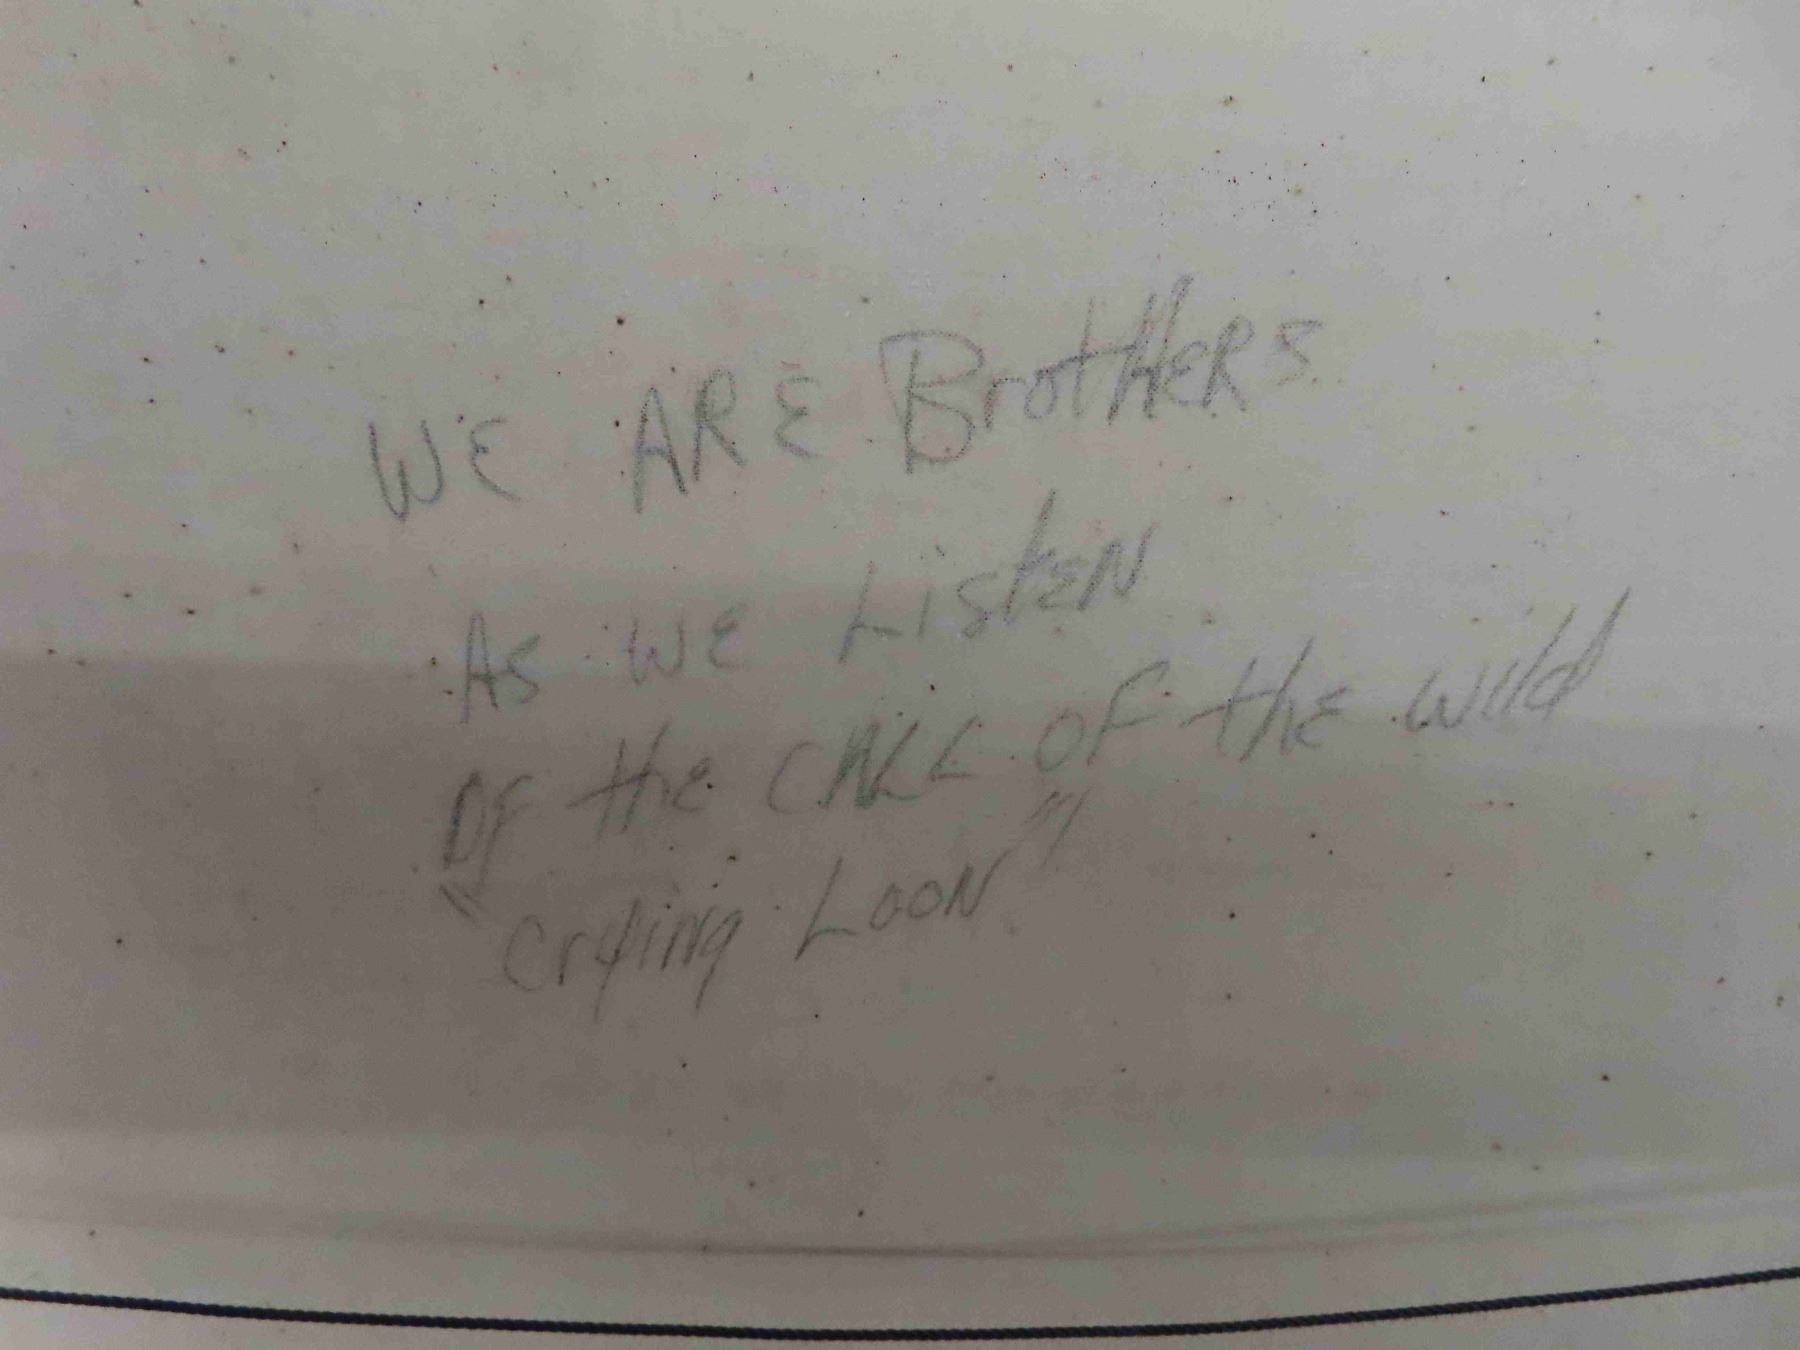 WE ARE BrotHERS
As WE ListEN
Of thE CALL OF thE wild
"Crying LooN"